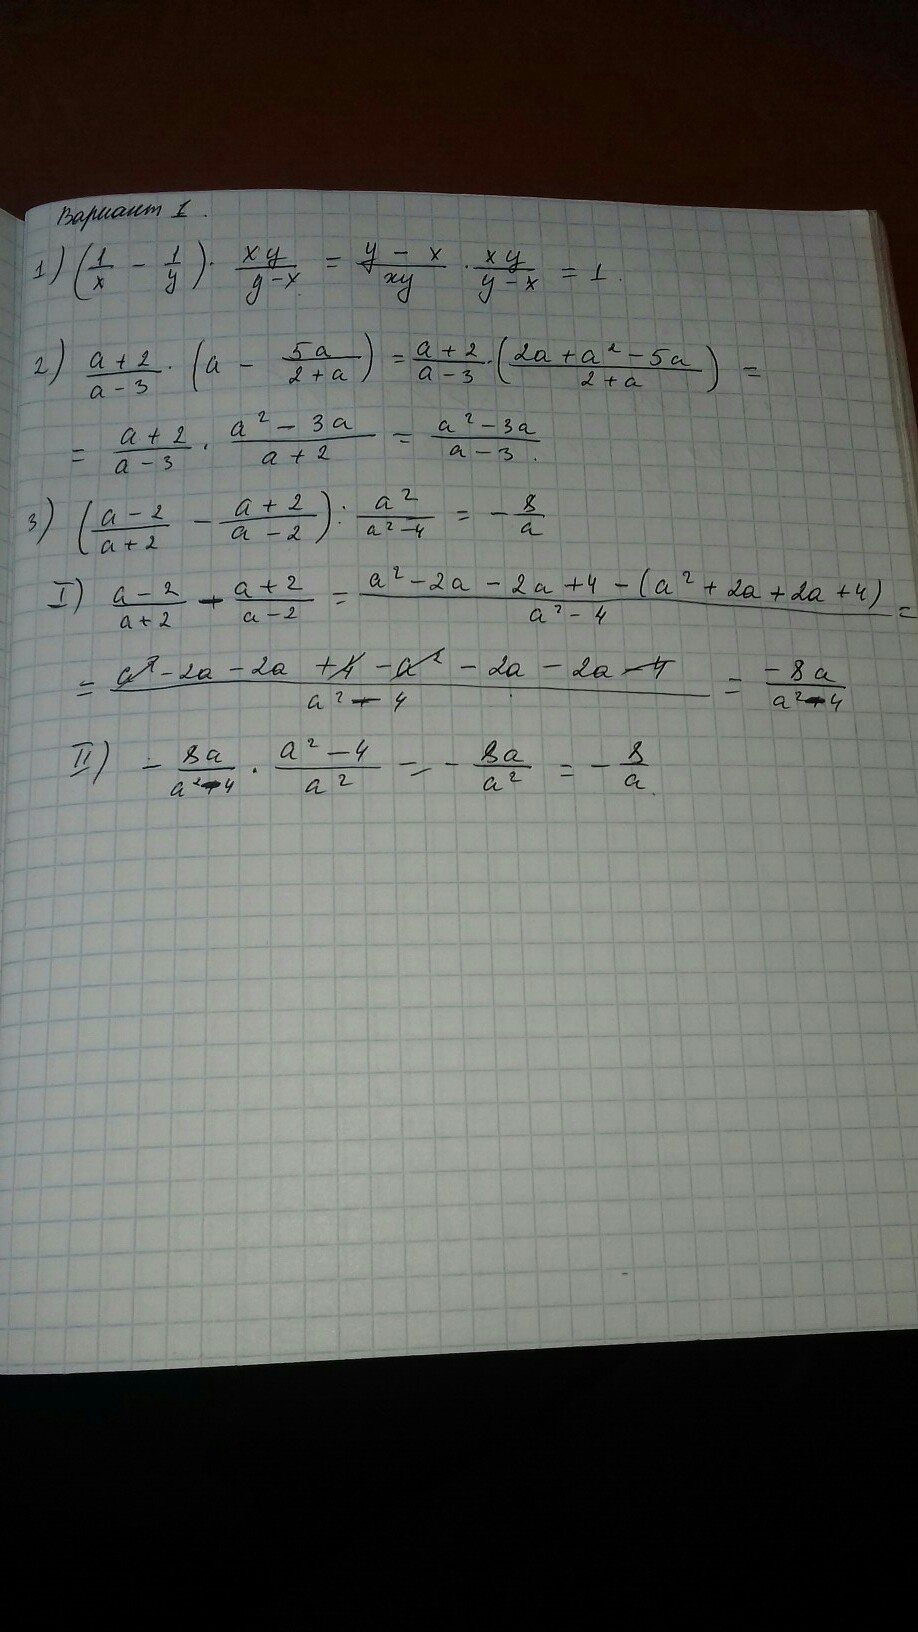 Вариант 1.
1) (1/x - 1/y) · xy/(y-x) = (y - x)/xy · xy/(y-x) = 1.
2) (a+2)/(a-3) · (a - 5a/(2+a)) = (a+2)/(a-3) · ((2a+a²-5a)/(2+a)) =
= (a+2)/(a-3) · (a²-3a)/(a+2) = (a²-3a)/(a-3).
3) ((a-2)/(a+2) - (a+2)/(a-2)) : a²/(a²-4) = -8/a
I) (a-2)/(a+2) - (a+2)/(a-2) = (a²-2a-2a+4-(a²+2a+2a+4))/(a²-4) =
= (a²-2a-2a+4-a²-2a-2a-4)/(a²-4) = -8a/(a²-4)
II) -8a/(a²-4) · (a²-4)/a² = -8a/a² = -8/a.